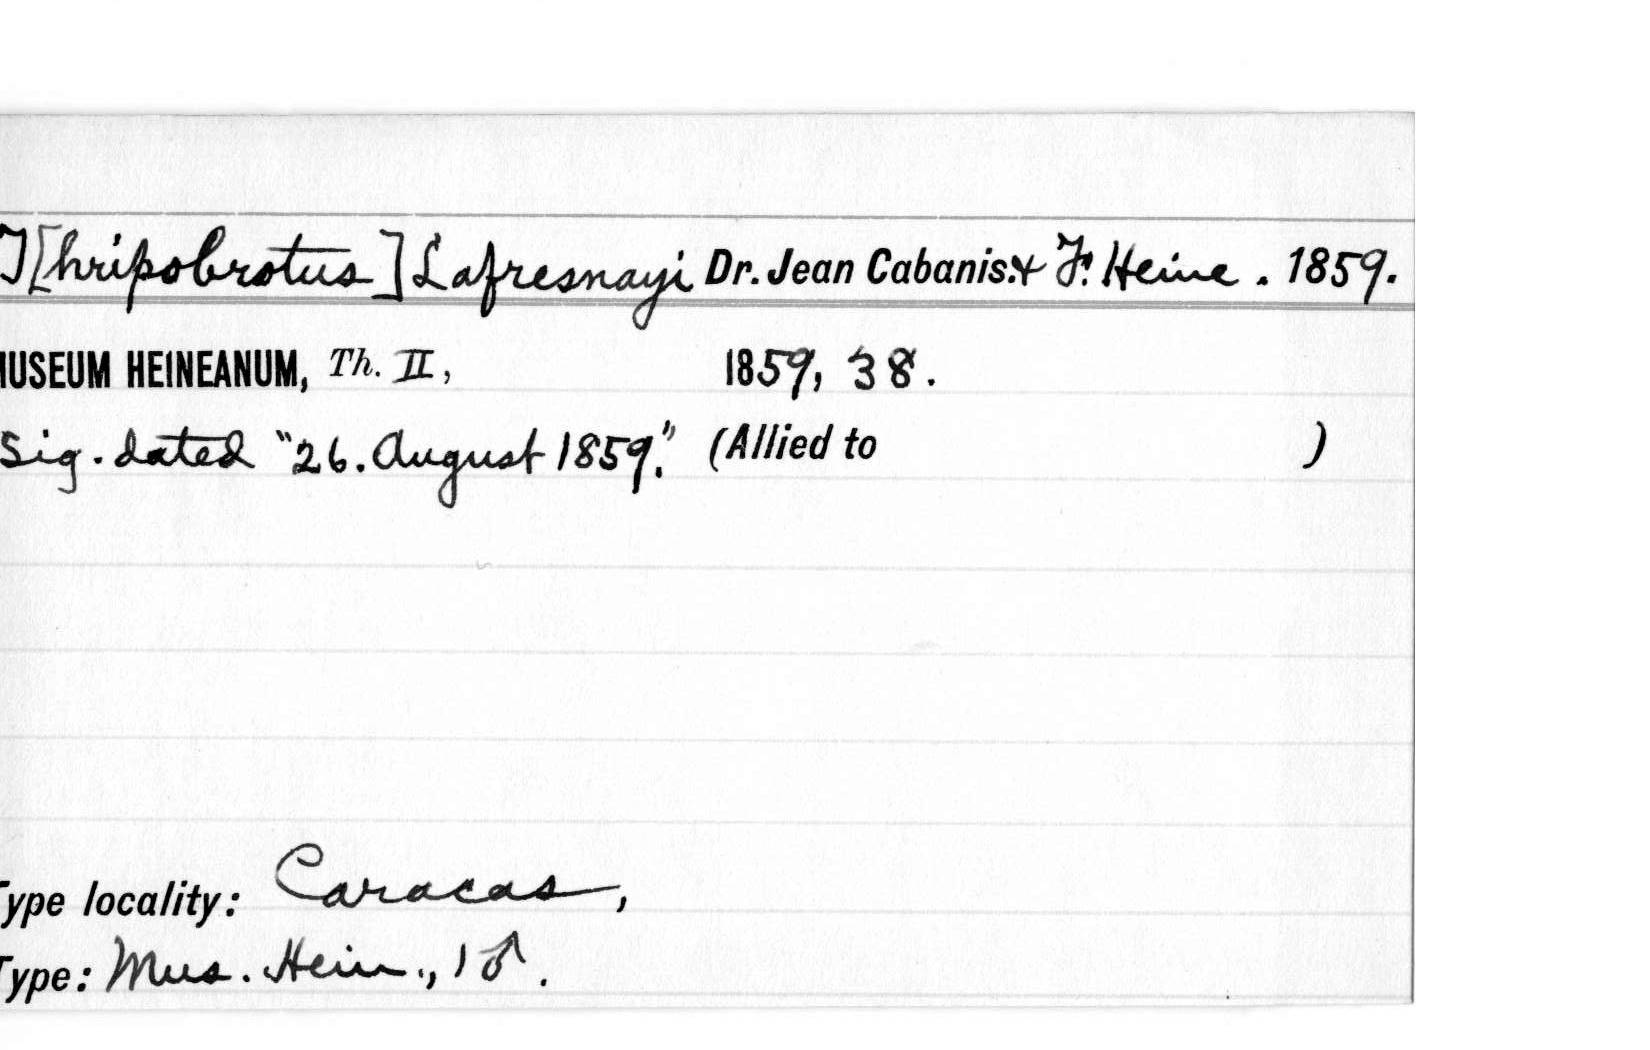 T[hripobrotus] Lafresnayi Dr. Jean Cabanis. & F. Heine. 1859.
MUSEUM HEINEANUM, Th. II, 1859, 38.
Sig. dated "26. August 1859." (Allied to )
Type locality: Caracas,
Type: Mus. Hein., 1 ♂.